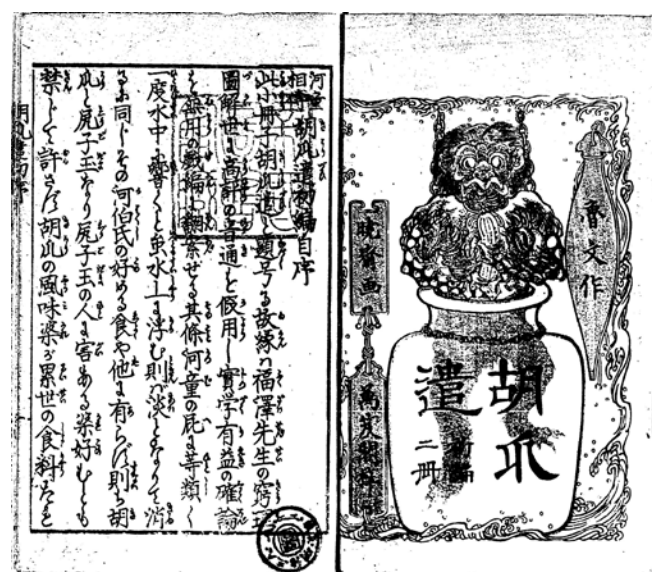 魯文作
胡瓜遣
初編
二冊
暁斎画
河童相傳 胡瓜遣初編自序
此小冊子胡瓜遣と題号る故縁ハ福澤先生の窮理
圖解世に高評の普通を假用し實学有益の確論
を無用の戯編に翻案せる其條河童の屁に等類しく
一度水中に響くと虽水上に浮む則ハ淡となりて消
るに同しその河伯氏の好める食や他に有らバ則ち胡
瓜と尻子玉なり尻子玉の人に害ある好むとも
禁じて許さず胡瓜の風味が累世の食料たるを